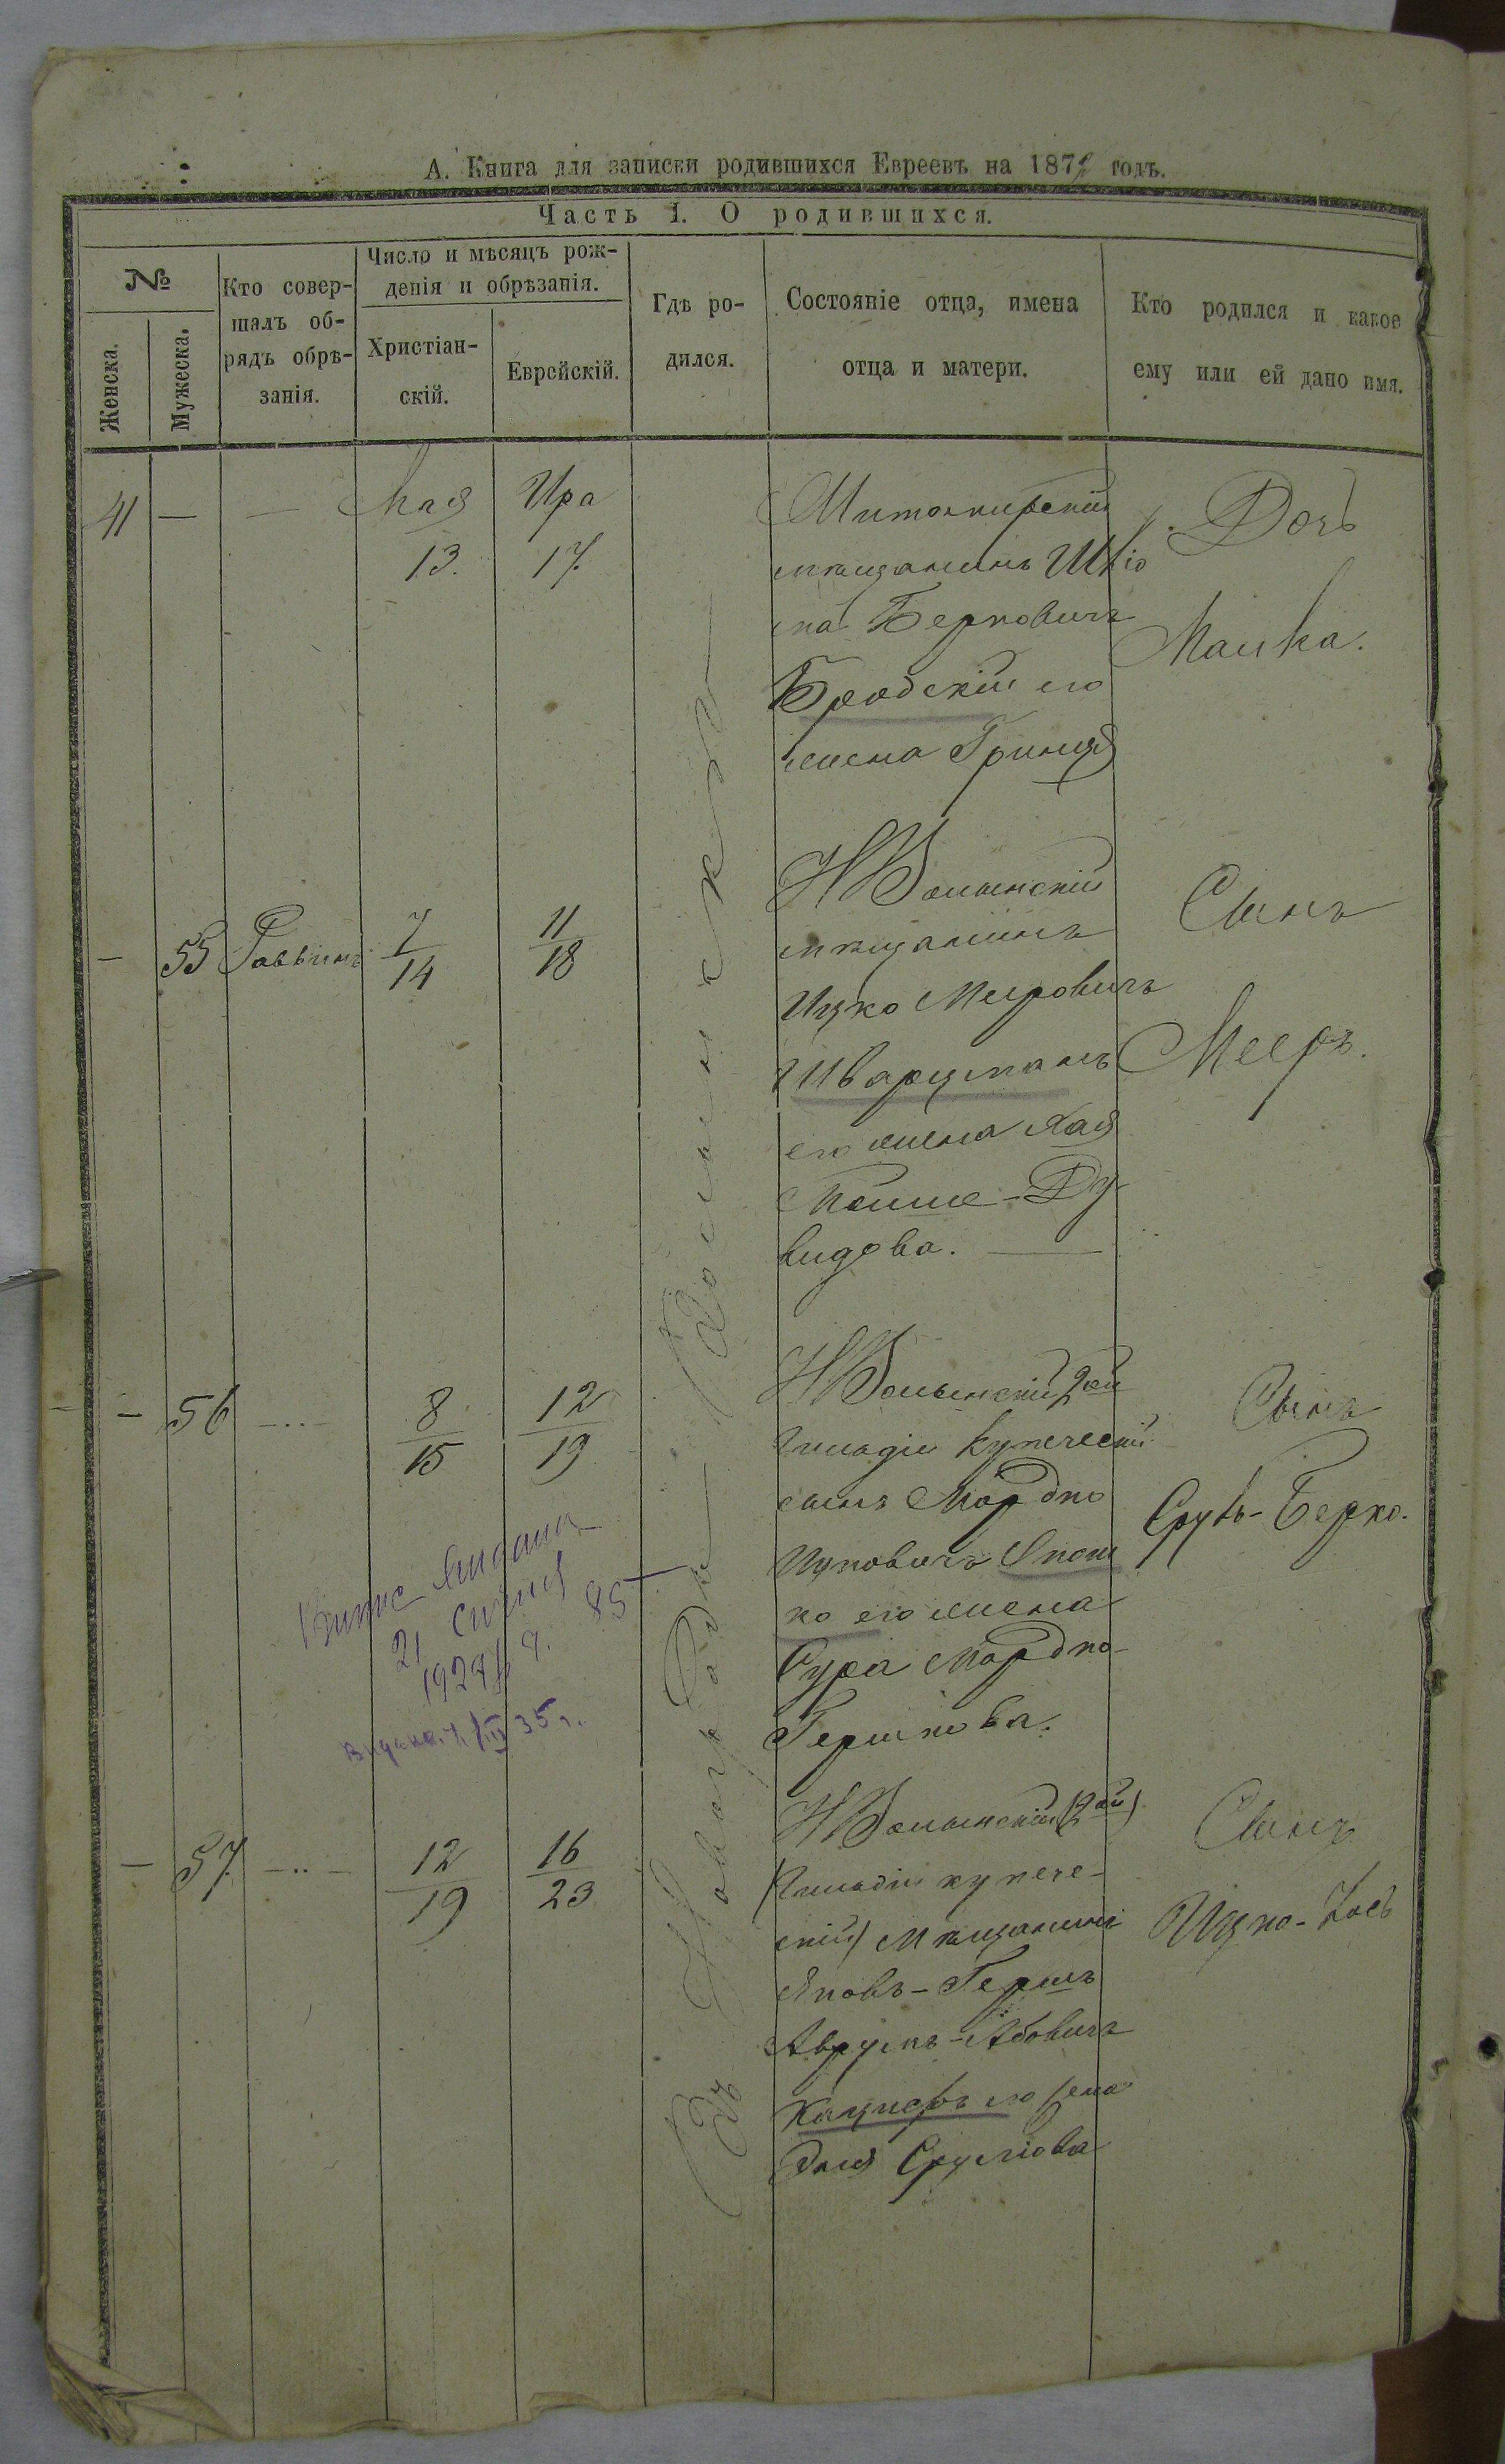 А. Книга для записки родившихся Евреевъ на 187 годъ.
Часть I. О родившихся.
№
Женска.
Мужеска.
Кто совер-
шалъ об-
рядъ обрѣ-
занія.
Число и мѣсяцъ рож-
денія и обрѣзанія.
Христіан-
скій.
Еврейскій.
Гдѣ ро-
дился.
Состояніе отца, имена
отца и матери.
Кто родился и какое
ему или ей дано имя.
Въ Новоградъ Волынскѣ
41 — — Мая Ира
13. 17.
мѣщанинъ Шліо
ма Берковичъ
Бродскій его
жена Гриня
Дочь
Малка.
— 55 Раввинъ 7/14 11/18
НВолынскій
мѣщанинъ
Ицко Меировичъ
Шварцманъ
его жена Хая
Моише-Ду-
видова.
Сынъ
Мееръ.
— 56 -..- 8/15 12/19
НВолынскій 2ой
гильдіи купеческій
сынъ Мордко
Ицковичъ
его жена
Сура Мордко-
Гершкова.
Сынъ
Сруль-Берко.
21 січня
85
35 г.
— 57. -..- 12/19 16/23
НВолынскій (2ой
гильдіи купече-
скій) мѣщанинъ
Яковъ-Гершъ
Аврумъ-Абовичъ
его жена
Сруліова
Сынъ
Ицко-Іось